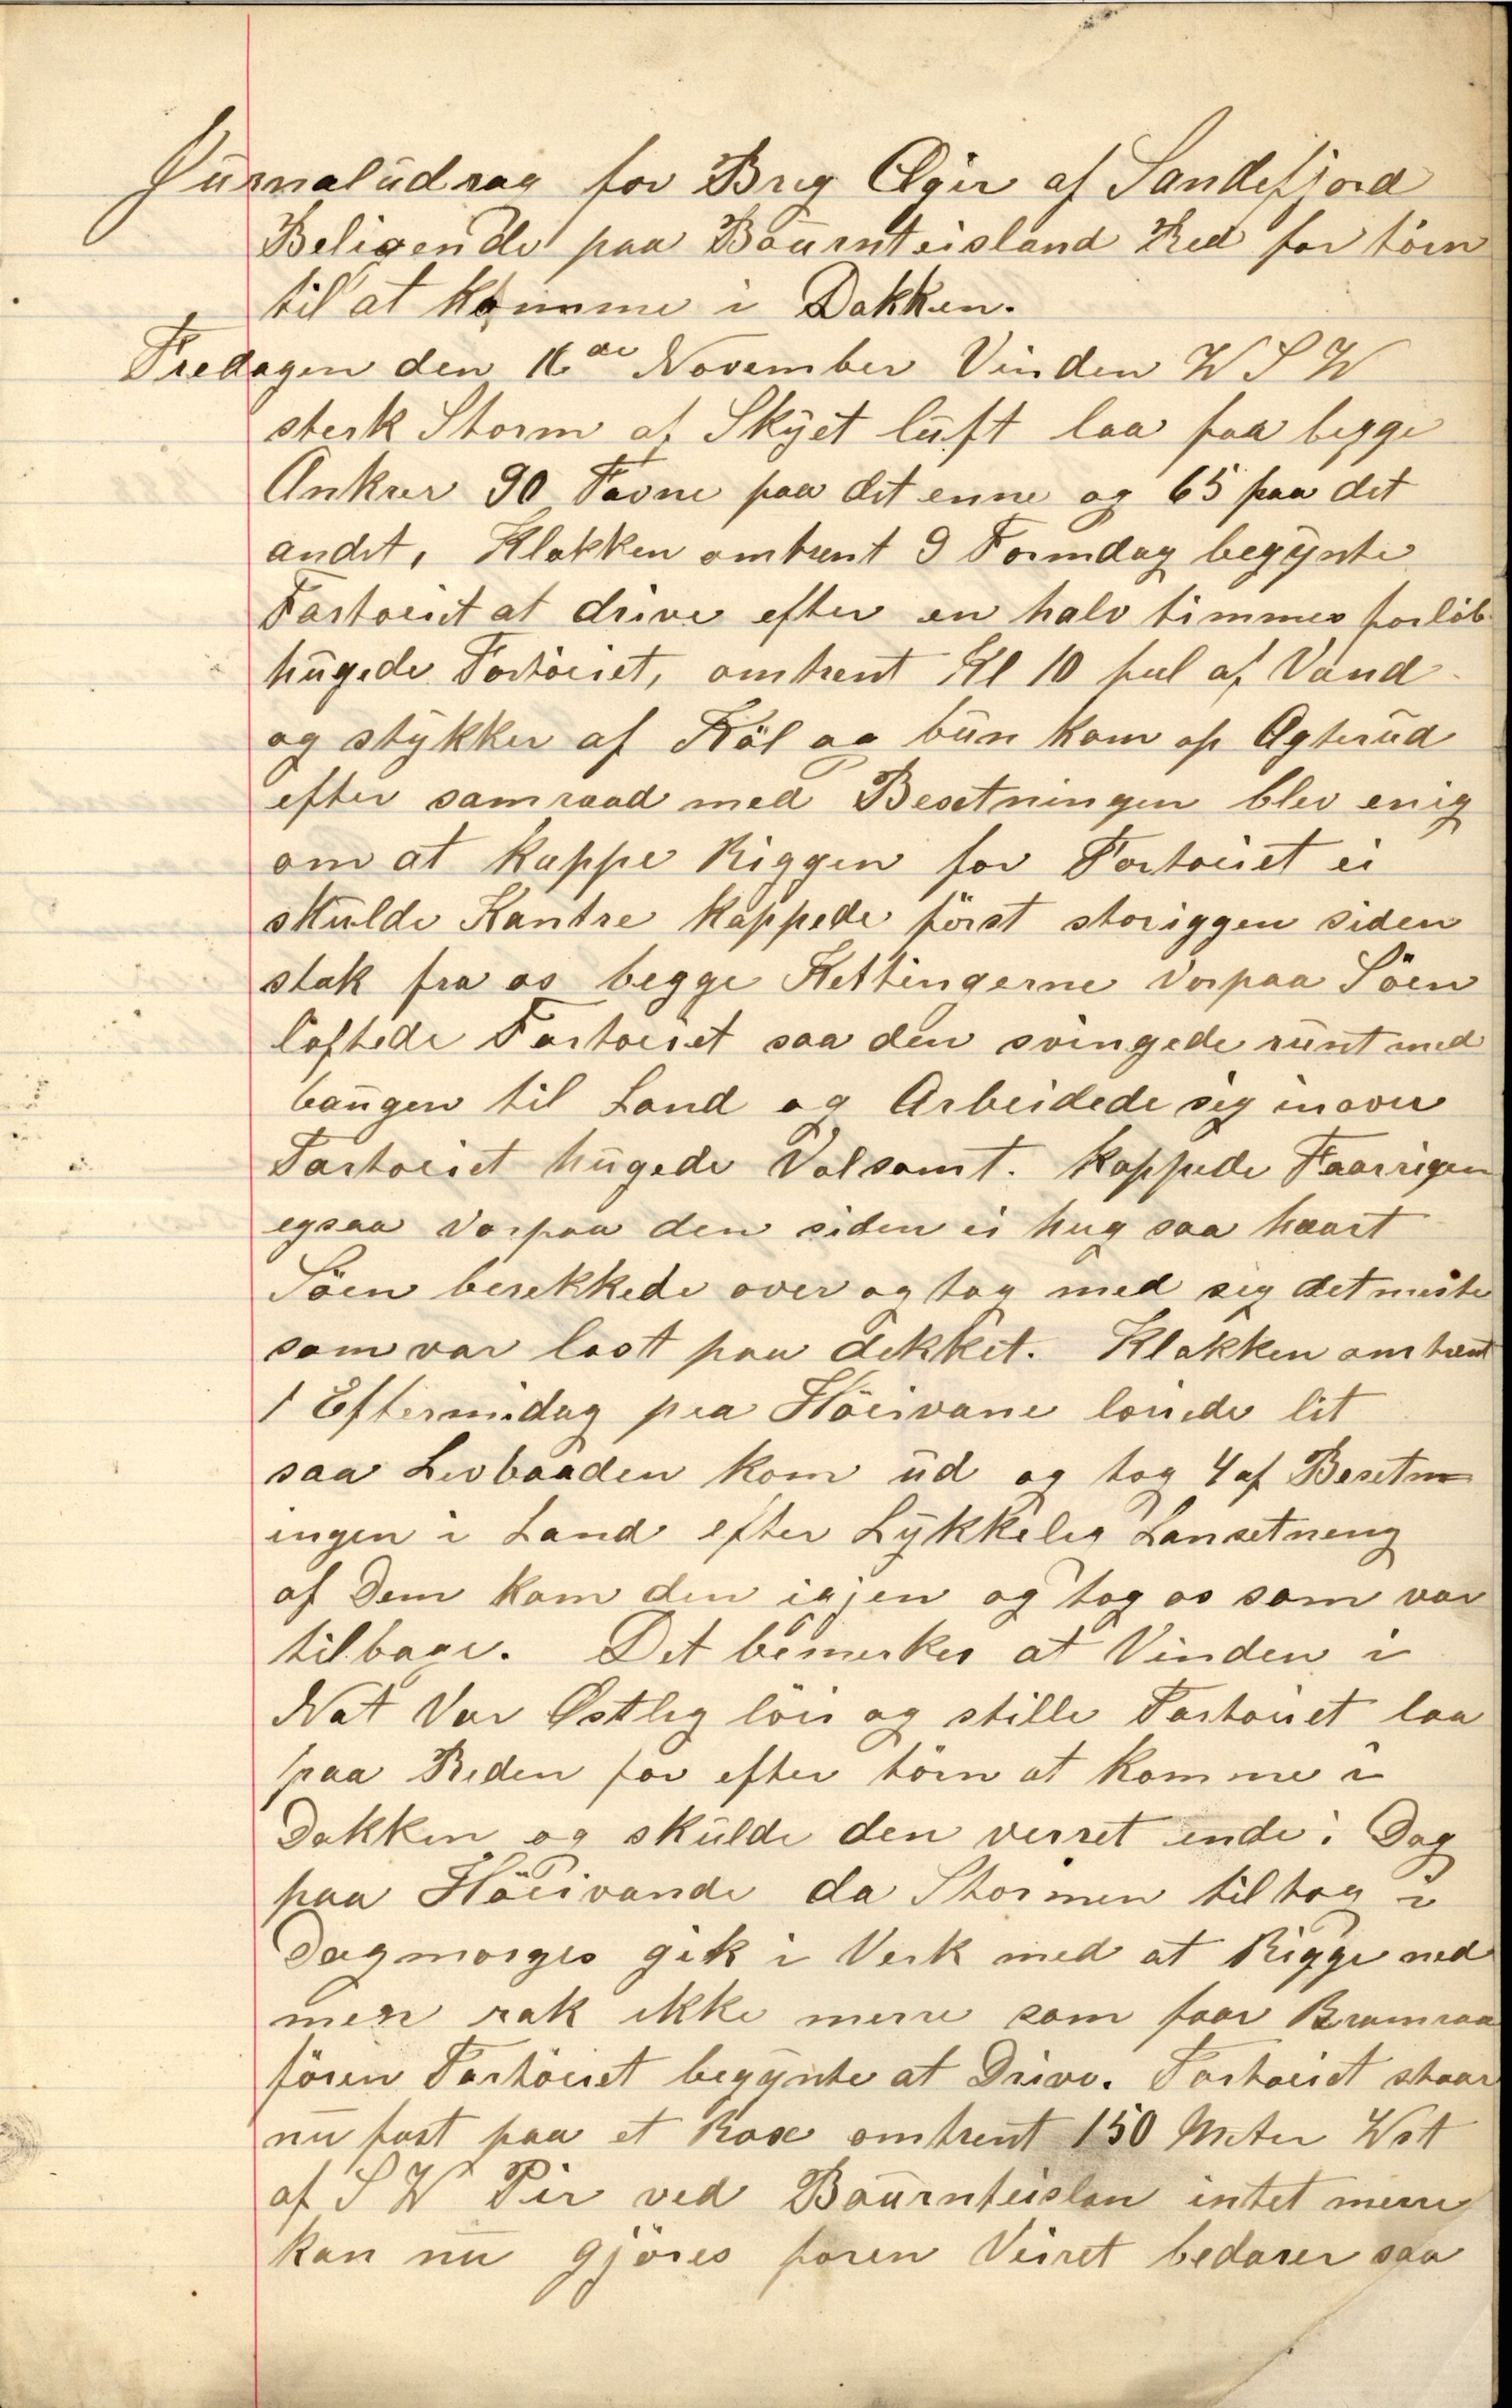 Jurnaludrag for Brig Ægir af Sandefjord
Beligende paa Bournteisland Red for törn
til at komme i Dokken.
Fredagen den 16de November Vinden W S W
sterk Storm af Skyet luft laa paa begge
Ankrer 90 Favne paa det enne og 65 paa det
andet, Klokken omtrent 9 Formdag begynte
Fartoeiet at drive efter en halv timmes forlöb
hugede Fortöiet, omtrent Kl 10 ful af Vand
og stykker af Köl og bun kom op Agterud
efter samraad med Besetningen blev enig
om at kappe Riggen for Fortoiet ei
skulde Kantre kappede först storiggen siden
stak fra os begge Kettingerne Vorpaa Söen
loftede Fartoeiet saa den svingede runt med
baugen til Land og Arbeidede sig inover
Fartoeiet hugede Volsomt. Kappede Faarrigen
egsaa Vorpaa den siden ei hug saa haart
Söen berekkede over og tog med sig det meste
som var løst paa dekket. Klokken omtrent
1 Eftermidag paa Höeivane loiede lit
saa Livbaaden kom ud og tog 4 af Besetn
ingen i Land efter Lykkelig Lansetneng
af Dem kom den igjen og tog os som var
tilbage. Det bemerkes at Vinden i
Nat Var Østlig löie og stille Fartoiet laa
paa Reden for efter törn at komme i
Dokken og skulde den verret inde i Dag
paa Höeivande da Stormen tiltog i
Dagmorges gik i Verk med at Rigge ned
men rak ikke merre som faar Bramraa
fören Fartöeiet begynte at Drive. Fartoeiet staar
nu fast paa et Rose omtrent 150 Meter West
af S W Pir ved Bournteislan intet merre
kan nu gjöres foren Veiret bedarer saa